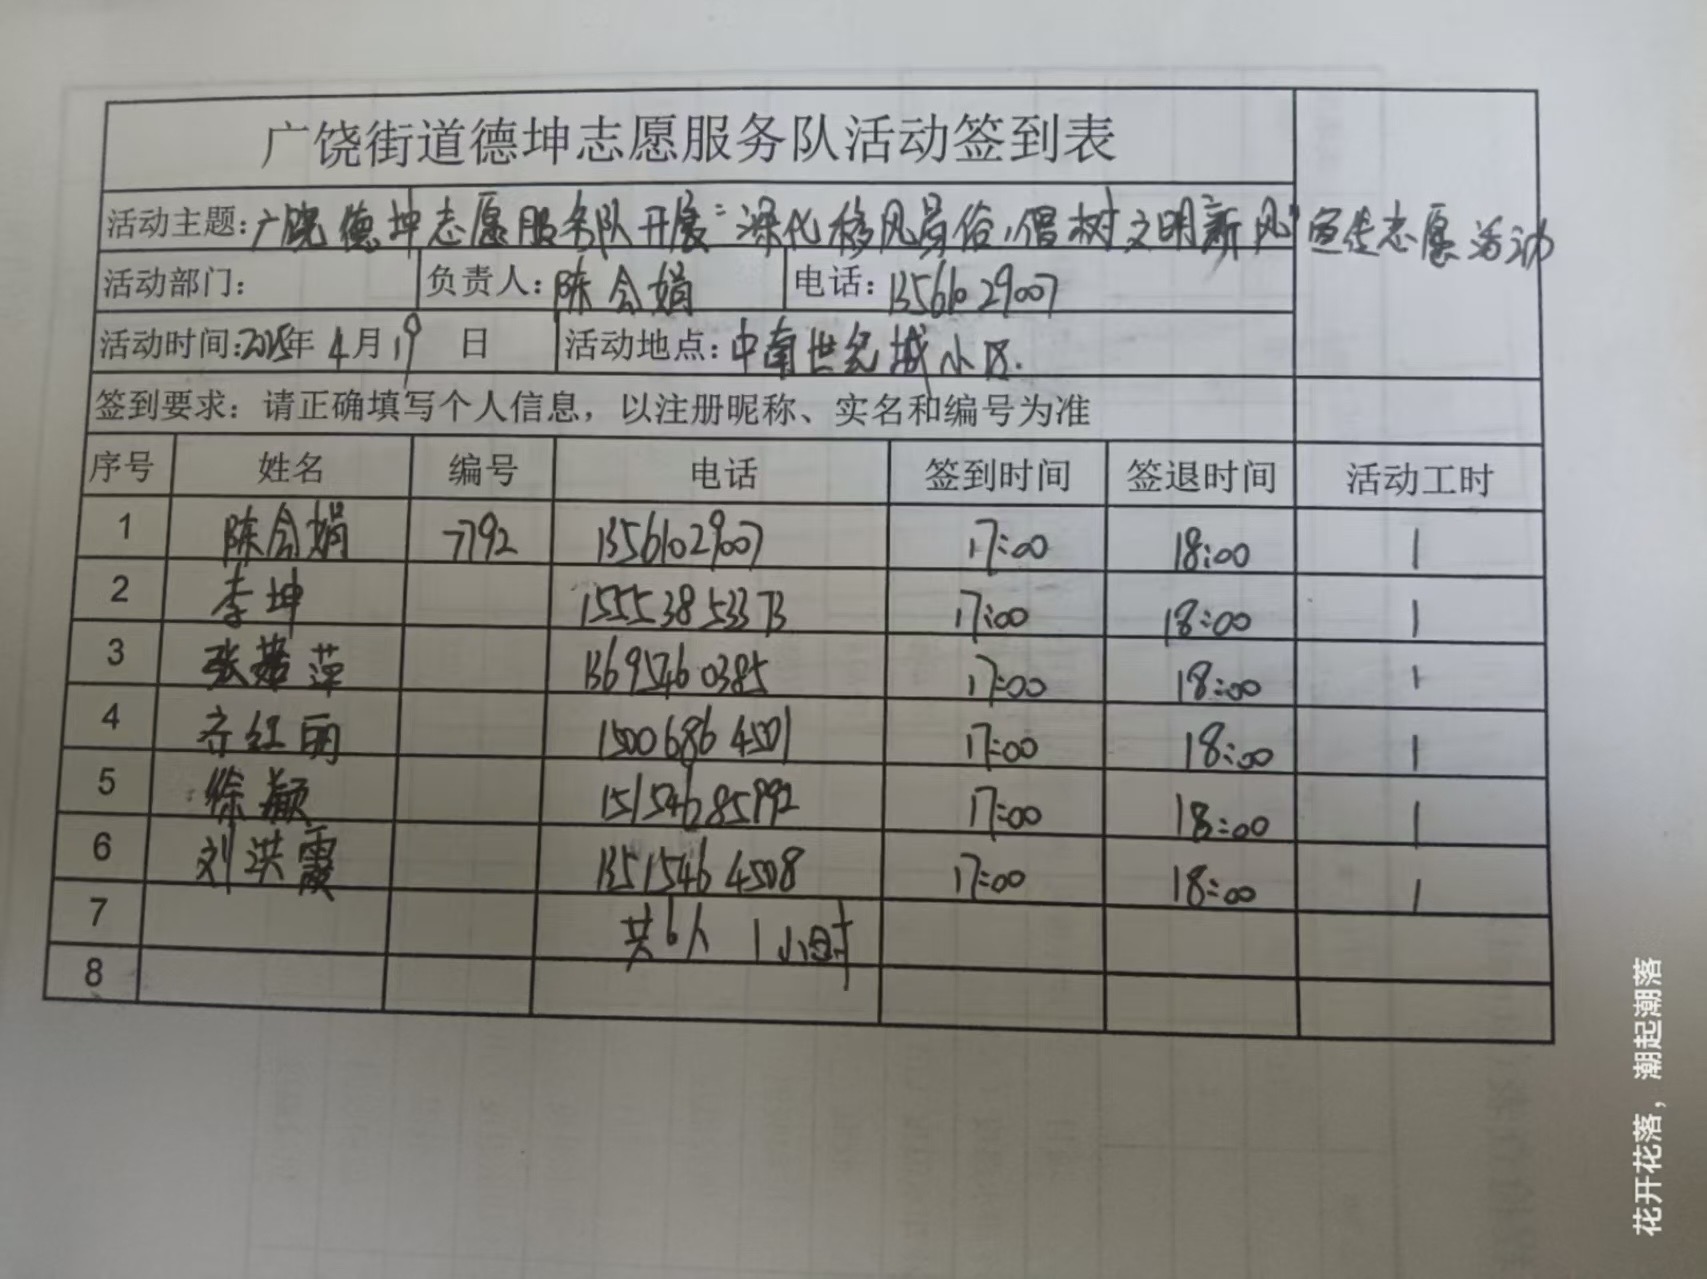 广饶街道德坤志愿服务队活动签到表
活动主题:广饶德坤志愿服务队开展“深化移风易俗,倡树文明新风”宣传志愿活动
活动部门: 负责人:陈会娟 电话:13561029007
活动时间:2025年4月19日 活动地点:中南世纪城小区.
签到要求:请正确填写个人信息,以注册昵称、实名和编号为准
序号 姓名 编号 电话 签到时间 签退时间 活动工时
1 陈会娟 7792 13561029007 17:00 18:00 1
2 李坤 15553853373 17:00 18:00 1
3 张萍 13695460385 17:00 18:00 1
4 齐红丽 15006864501 17:00 18:00 1
5 徐颖 15154685992 17:00 18:00 1
6 刘洪霞 13515464508 17:00 18:00 1
7 共6人 1小时
8
花开花落，潮起潮落